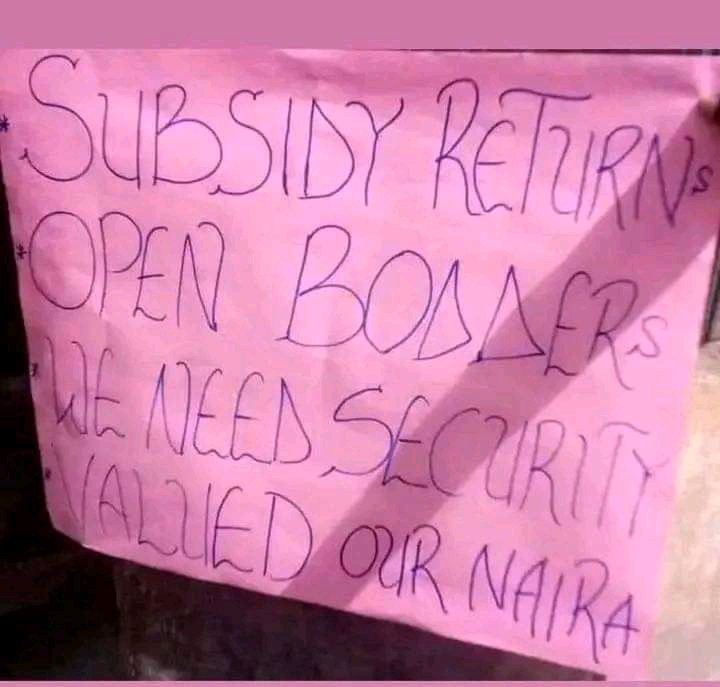 * SUBSIDY RETURNS
* OPEN BODDERS
* WE NEED SECURITY
* VALUED OUR NAIRA